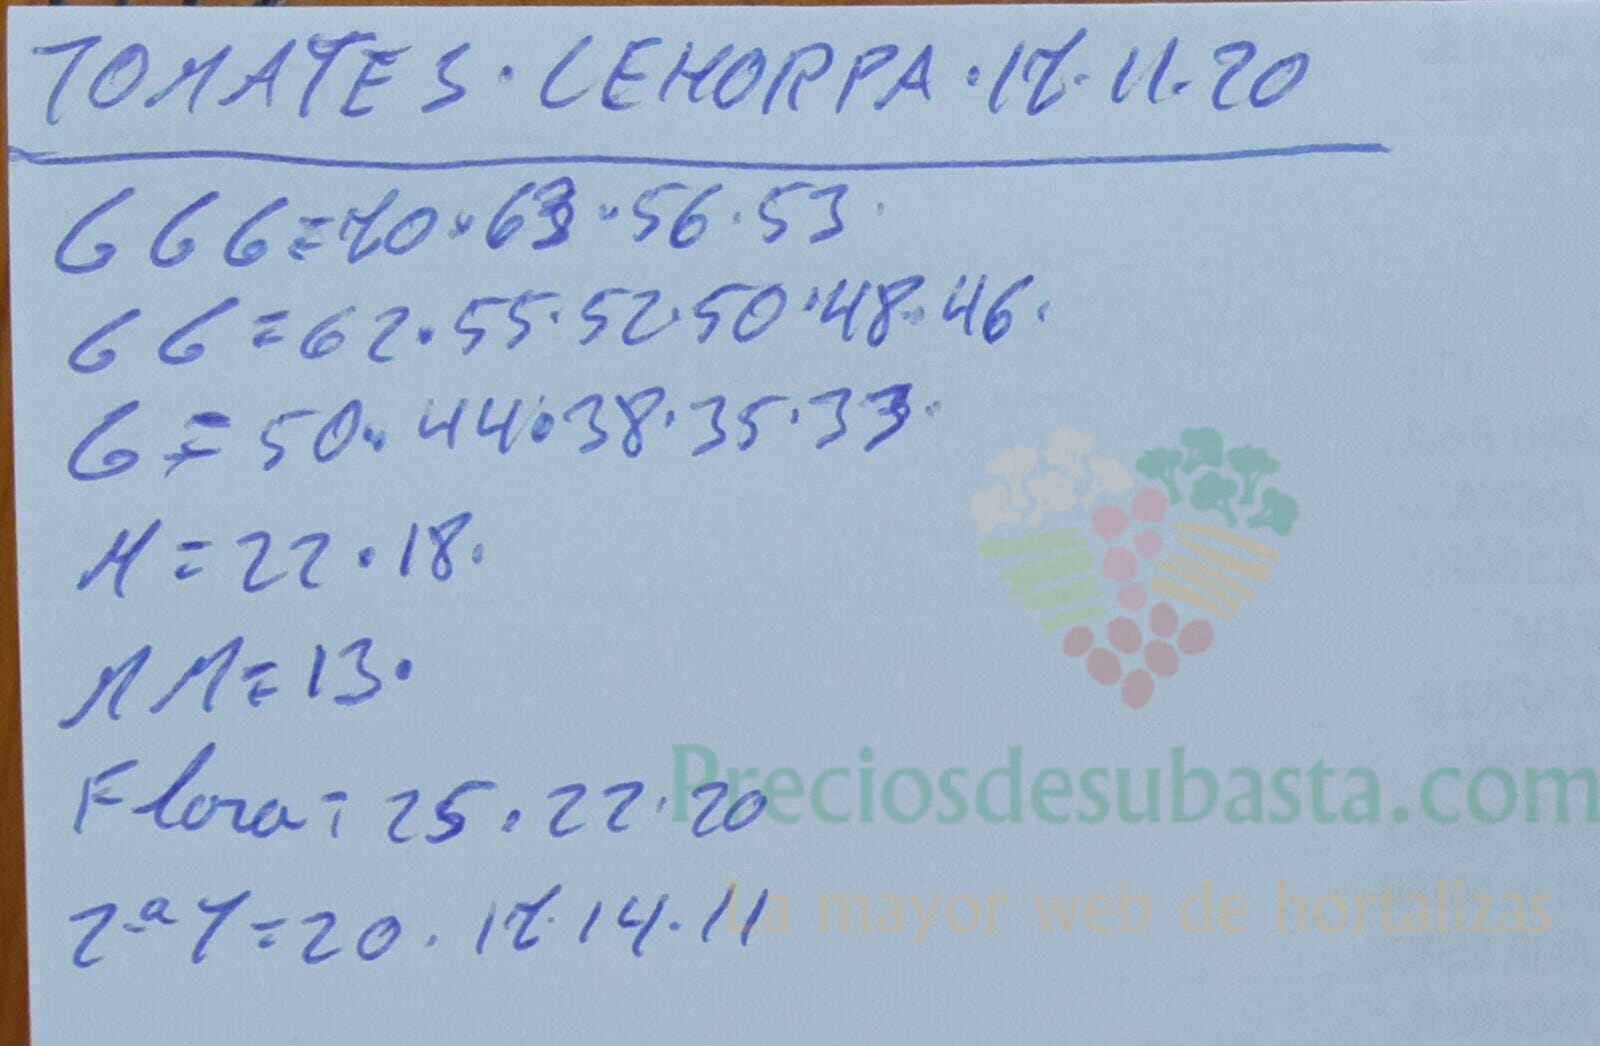 TOMATES · CEHORPA · 17 · 11 · 20
GGG = 70 · 63 · 56 · 53 ·
GG = 62 · 55 · 52 · 50 · 48 · 46 ·
G = 50 · 44 · 38 · 35 · 33 ·
M = 22 · 18 ·
MM = 13 ·
Flora = 25 · 22 · 20
2ª Y = 20 · 17 · 14 · 11
Preciosdesubasta.com
La mayor web de hortalizas